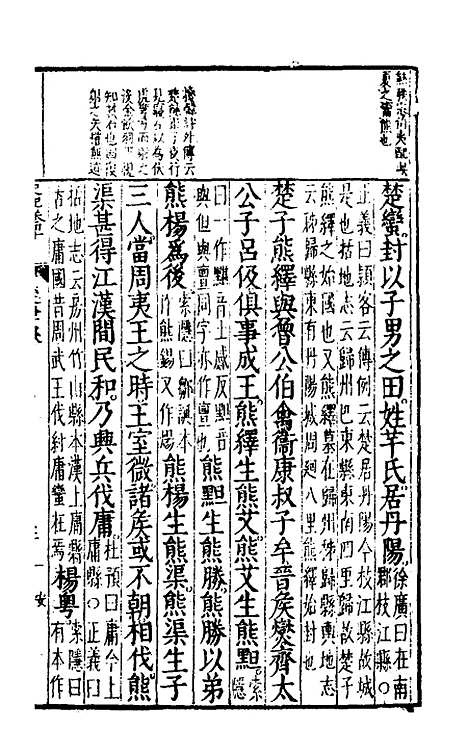 楚蠻封以子男之田姓羋氏居丹陽徐廣曰在南
郡枝江縣○
正義曰潁客云傳例云楚居丹陽今枝江縣故城
是也括地志云歸州巴東縣東南四里歸故楚子
熊繹之始國也又熊繹墓在歸州秭歸縣輿地志
云秭歸縣東有丹陽城周廻八里熊繹始封也
楚子熊繹與魯公伯禽衞康叔子牟晉侯燮齊太
公子呂伋俱事成王熊繹生熊艾熊艾生熊䵣索隱
曰一作黵音土感反䵣音
與但與亶同字亦作亶也
熊䵣生熊勝熊勝以弟
熊楊爲後索隱曰鄒誕本
作熊鍚又作煬
熊楊生熊渠熊渠生子
三人當周夷王之時王室微諸侯或不朝相伐熊
渠甚得江漢間民和乃興兵伐庸杜預曰庸今上
庸縣○正義曰
括地志云房州竹山縣本漢上庸縣
古之庸國昔周武王伐紂庸蠻在焉
楊粵索隱曰
有本作
韓詩外傳云
楚熊渠子夜行
見寢石以為伏